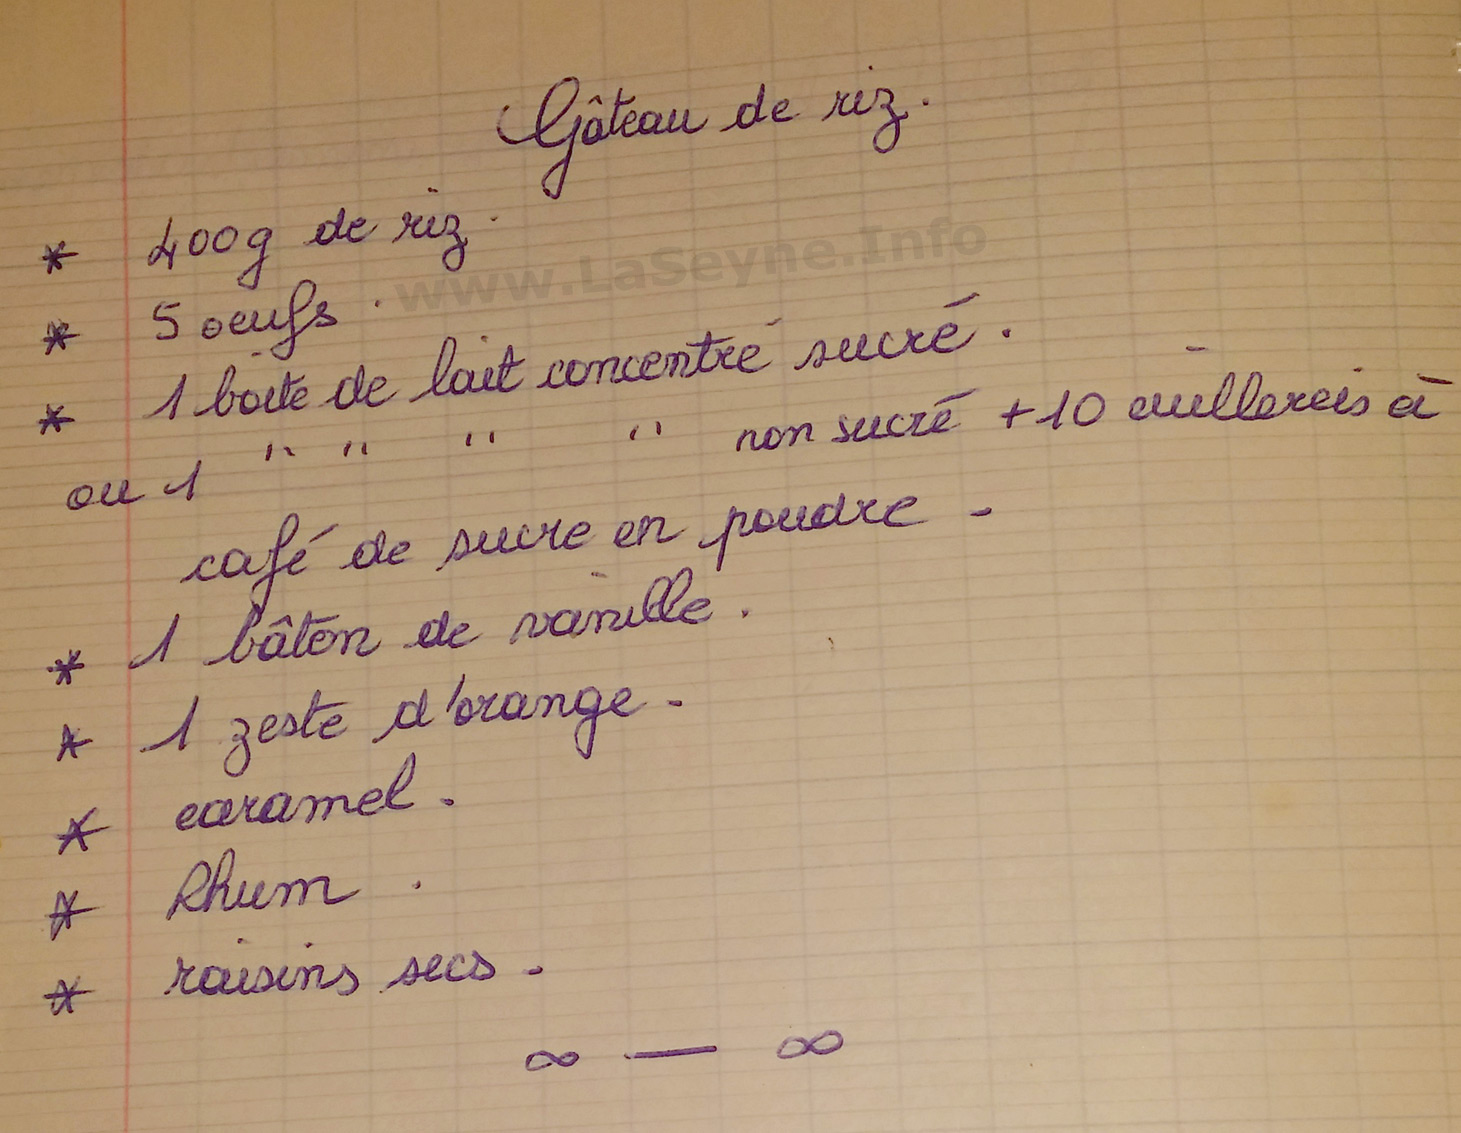 Gâteau de riz.
* 400g de riz.
www.LaSeyne.Info
* 5 oeufs.
* 1 boite de lait concentré sucré.
ou 1 " " " " non sucré + 10 cuillereis à
café de sucre en poudre -
* 1 bâton de vanille.
* 1 zeste d'orange -
* caramel.
* Rhum.
* raisins secs -
∞ — ∞